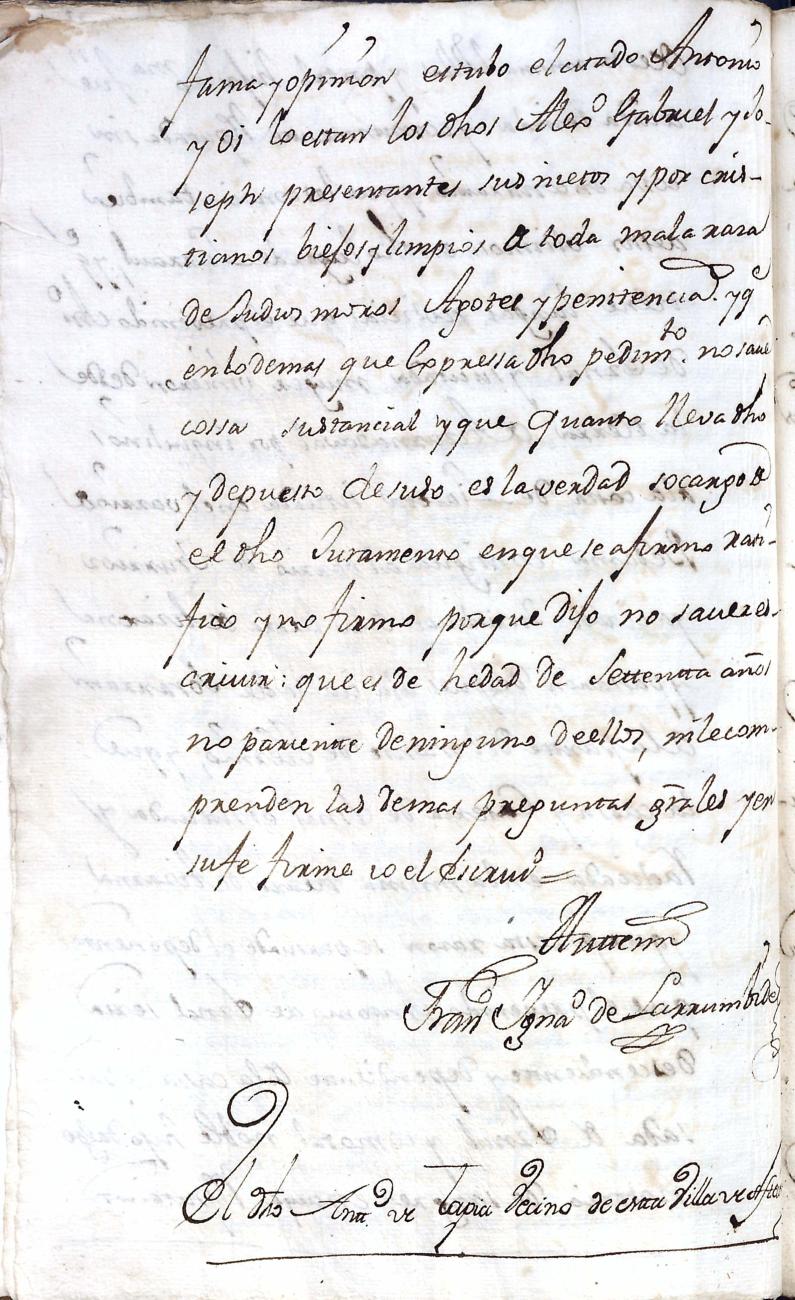 fama y opinion estubo el citado Antonio
y oi lo estan los dhos Alexo Gabriel y Jo-
seph presentantes sus nietos y por cris-
tianos biejos y limpios de toda mala raza
de Judios moros Agotes y penitenciad.s y qe
en lo demas que Expressa dho pedim.to no save
cossa sustancial y que Quanto lleva dho
y depuesto de suso es la verdad so cargo de
el dho Juramento en que se afirmo rati-
fico y no firmo porque dijo no saver es-
crivir: que es de hedad de Settentta años
no pariente de ninguno de ellos, ni le com-
prenden las demas preguntas grales y en
su fe firme yo el Escrivno =
Antte mi
Franco Ignao de Larrumbide
El dho Antto de Tapia Vecino de esta Villa